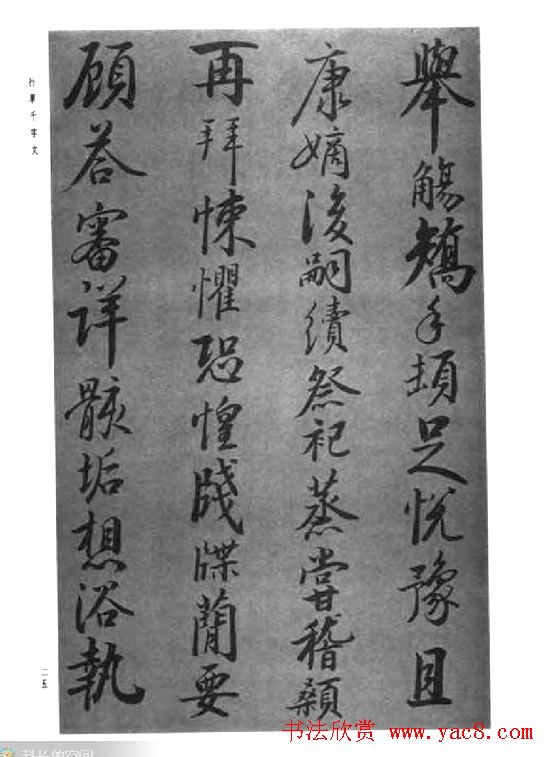 舉觴矯手頓足悅豫且
康嫡後嗣續祭祀蒸嘗稽顙
再拜悚懼恐惶牋牒蕳要
顧荅審詳骸垢想浴執
行草千字文
二五
书法欣赏 www.yac8.com
科长的空间